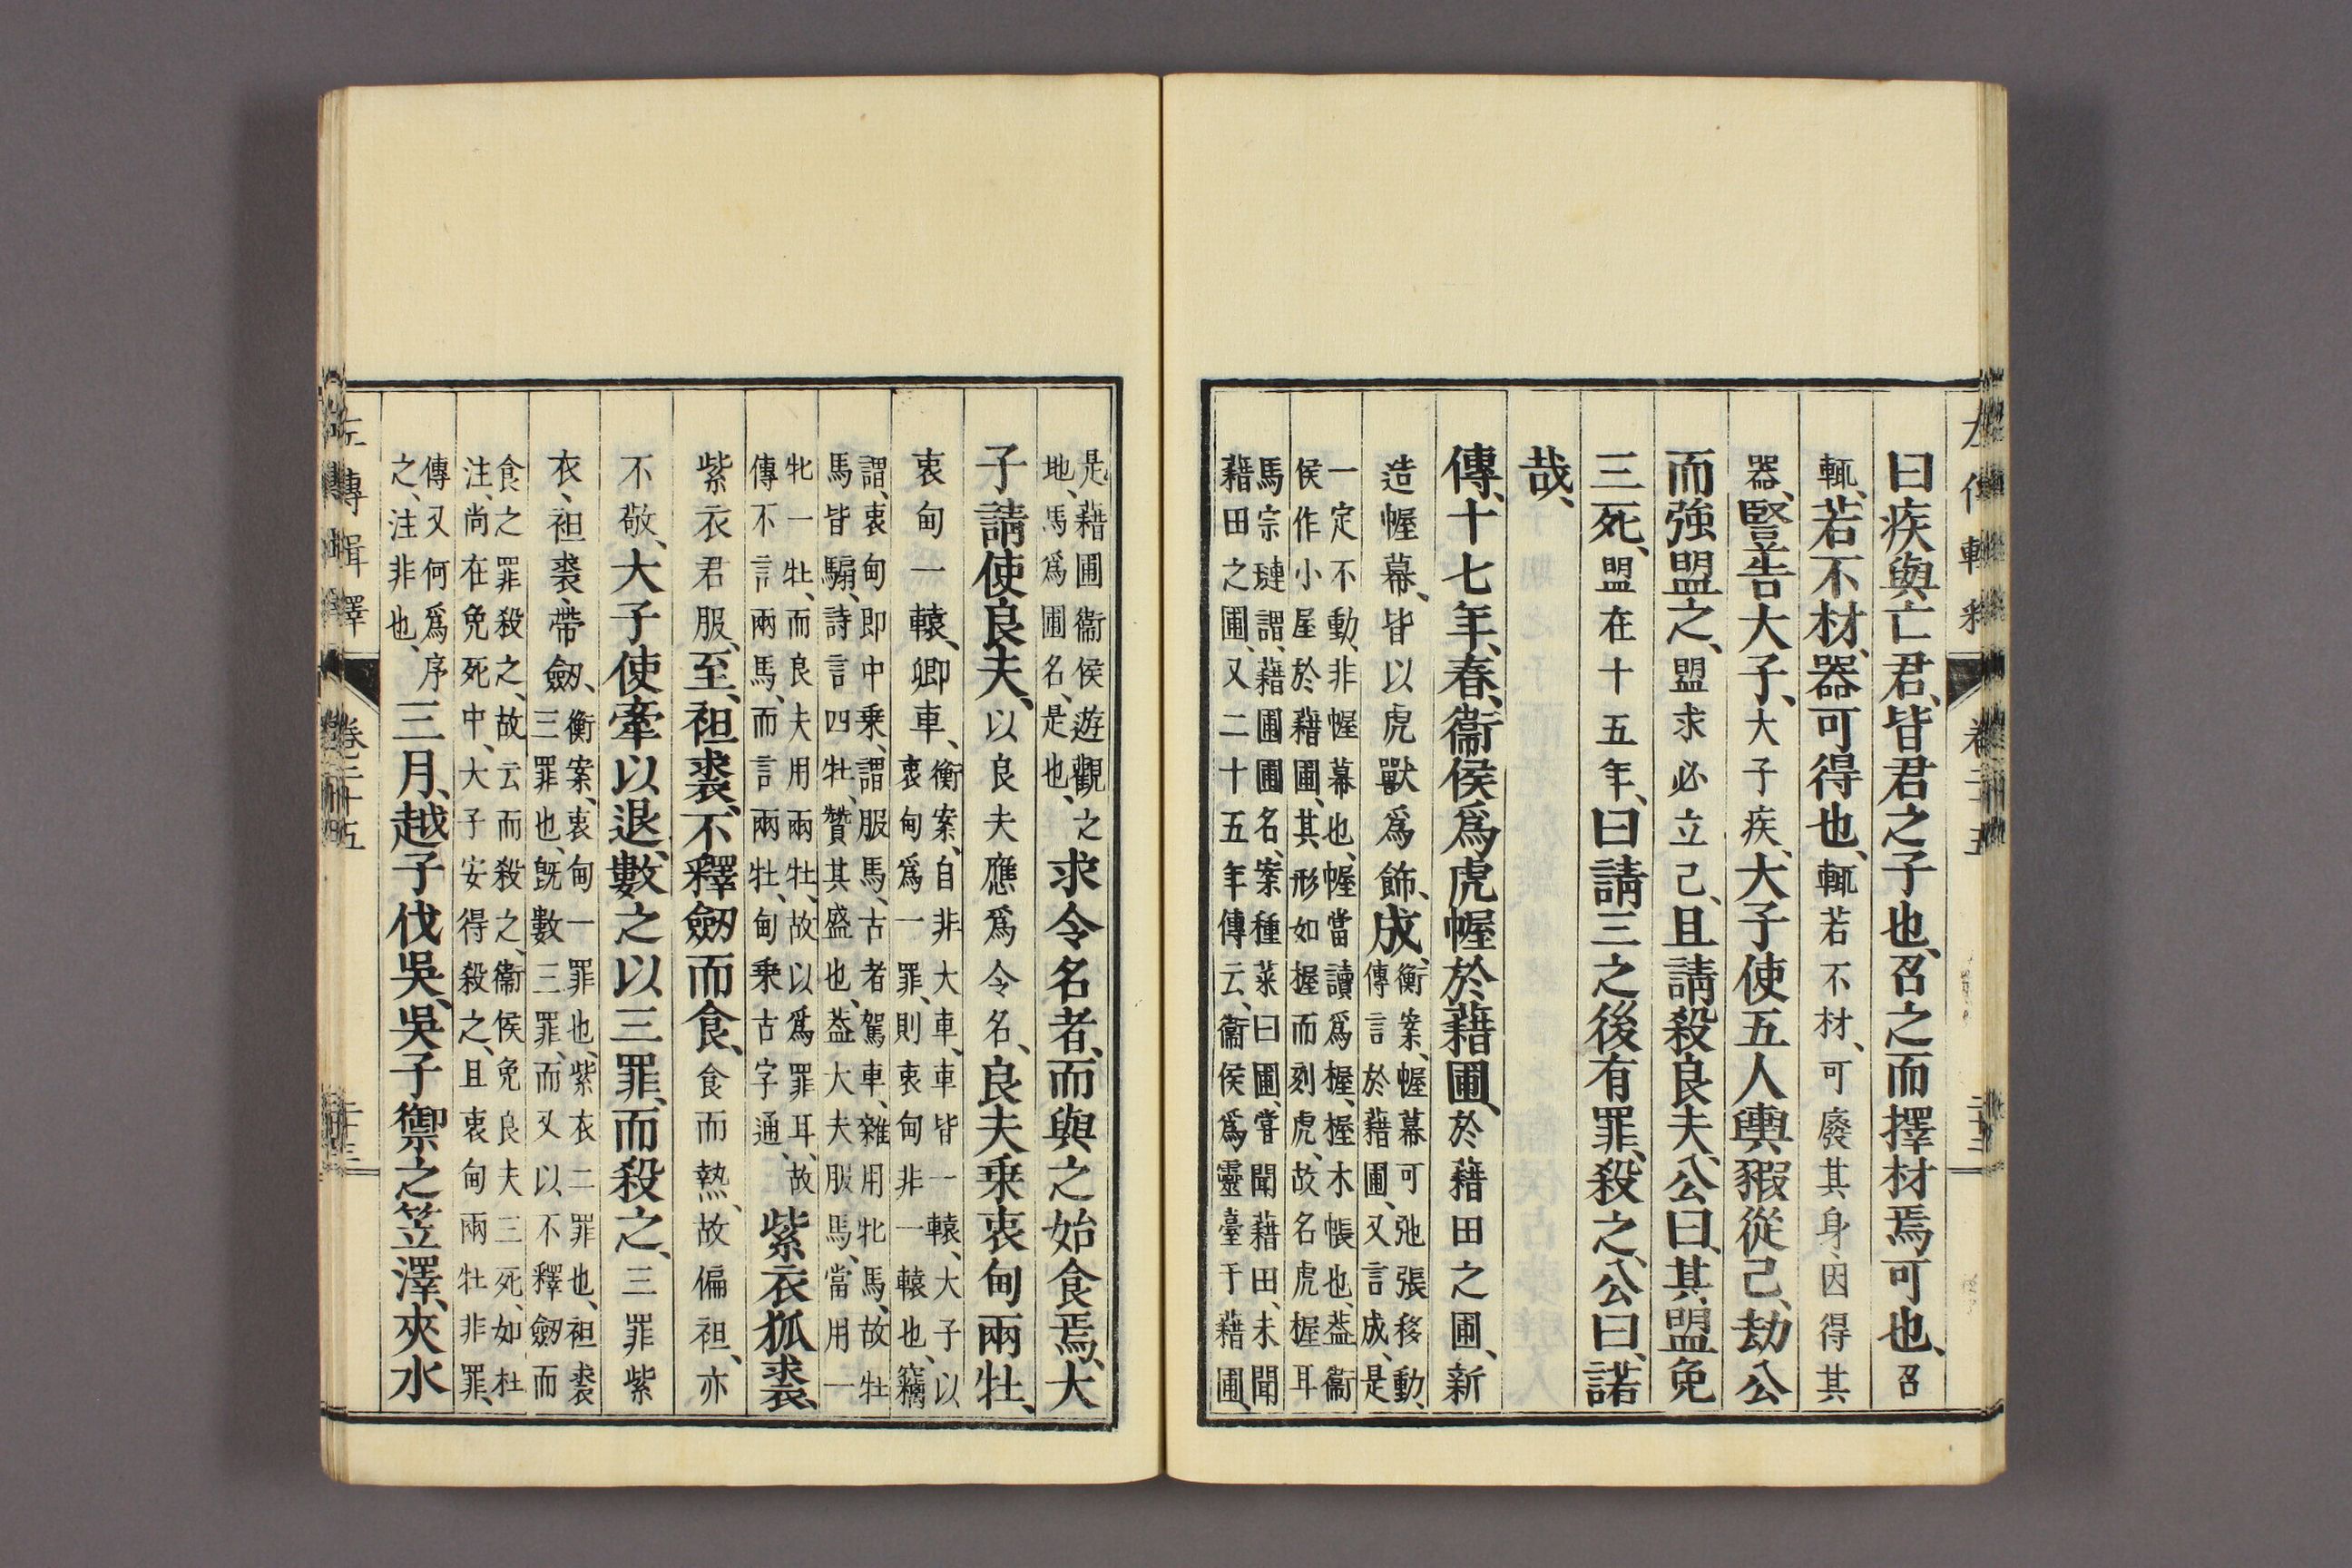 曰疾與亡君、皆君之子也、召之而擇材焉可也、召
輒、若不材、器可得也、輒若不材、可廢其身、因得其
器、豎告大子、大子疾、大子使五人輿豭從己、劫公
而強盟之、盟求必立己、且請殺良夫、公曰、其盟免
三死、盟在十五年、曰請三之後有罪、殺之、公曰、諾
哉、
傳、十七年、春、衞侯爲虎幄於藉圃、於藉田之圃、新
造幄幕、皆以虎獸爲飾、成、衡案、幄幕可弛張移動、
傳言於藉圃、又言成、是
一定不動、非幄幕也、幄當讀爲楃、楃木帳也、葢衞
侯作小屋於藉圃、其形如楃而刻虎、故名虎楃耳
馬宗璉謂、藉圃圃名、案種菜曰圃、嘗聞藉田、未聞
藉田之圃、又二十五年傳云、衞侯爲靈臺于藉圃、
是藉圃衞侯遊觀之
地、馬爲圃名、是也、求令名者、而與之始食焉、大
子請使良夫、以良夫應爲令名、良夫乗衷甸兩牡、
衷甸一轅、卿車、衡案、自非大車、車皆一轅、大子以
衷甸爲一罪、則衷甸非一轅也、竊
謂、衷甸即中乗、謂服馬、古者駕車、雜用牝馬、故牡
馬皆騸、詩言四牡、贊其盛也、葢大夫服馬、當用一
牝一牡、而良夫用兩牡、故以爲罪耳、故
傳不言兩馬、而言兩牡、甸乗古字通、紫衣狐裘、
紫衣君服、至、袒裘、不釋劒而食、食而熱、故偏袒、亦
不敬、大子使牽以退、數之以三罪、而殺之、三罪紫
衣、袒裘、帶劒、衡案、衷甸一罪也、紫衣二罪也、袒裘
三罪也、旣數三罪、而又以不釋劒而
食之罪殺之、故云而殺之、衞侯免良夫三死、如杜
注、尚在免死中、大子安得殺之、且衷甸兩牡非罪、
傳又何爲序
之、注非也、三月、越子伐吳、吳子禦之笠澤、夾水
左傳輯釋
卷二十五
二十三